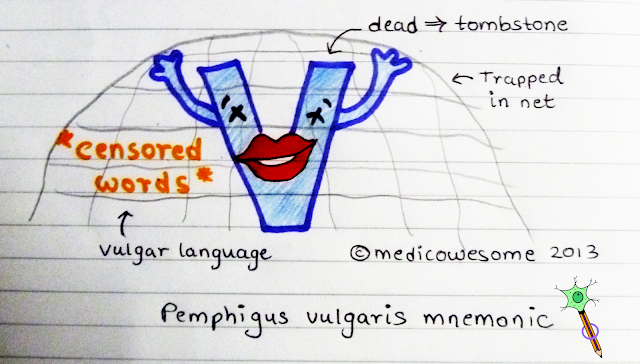 dead ⇒ tombstone
Trapped
in net
*censored
words*
vulgar language
©medicowesome 2013
Pemphigus vulgaris mnemonic